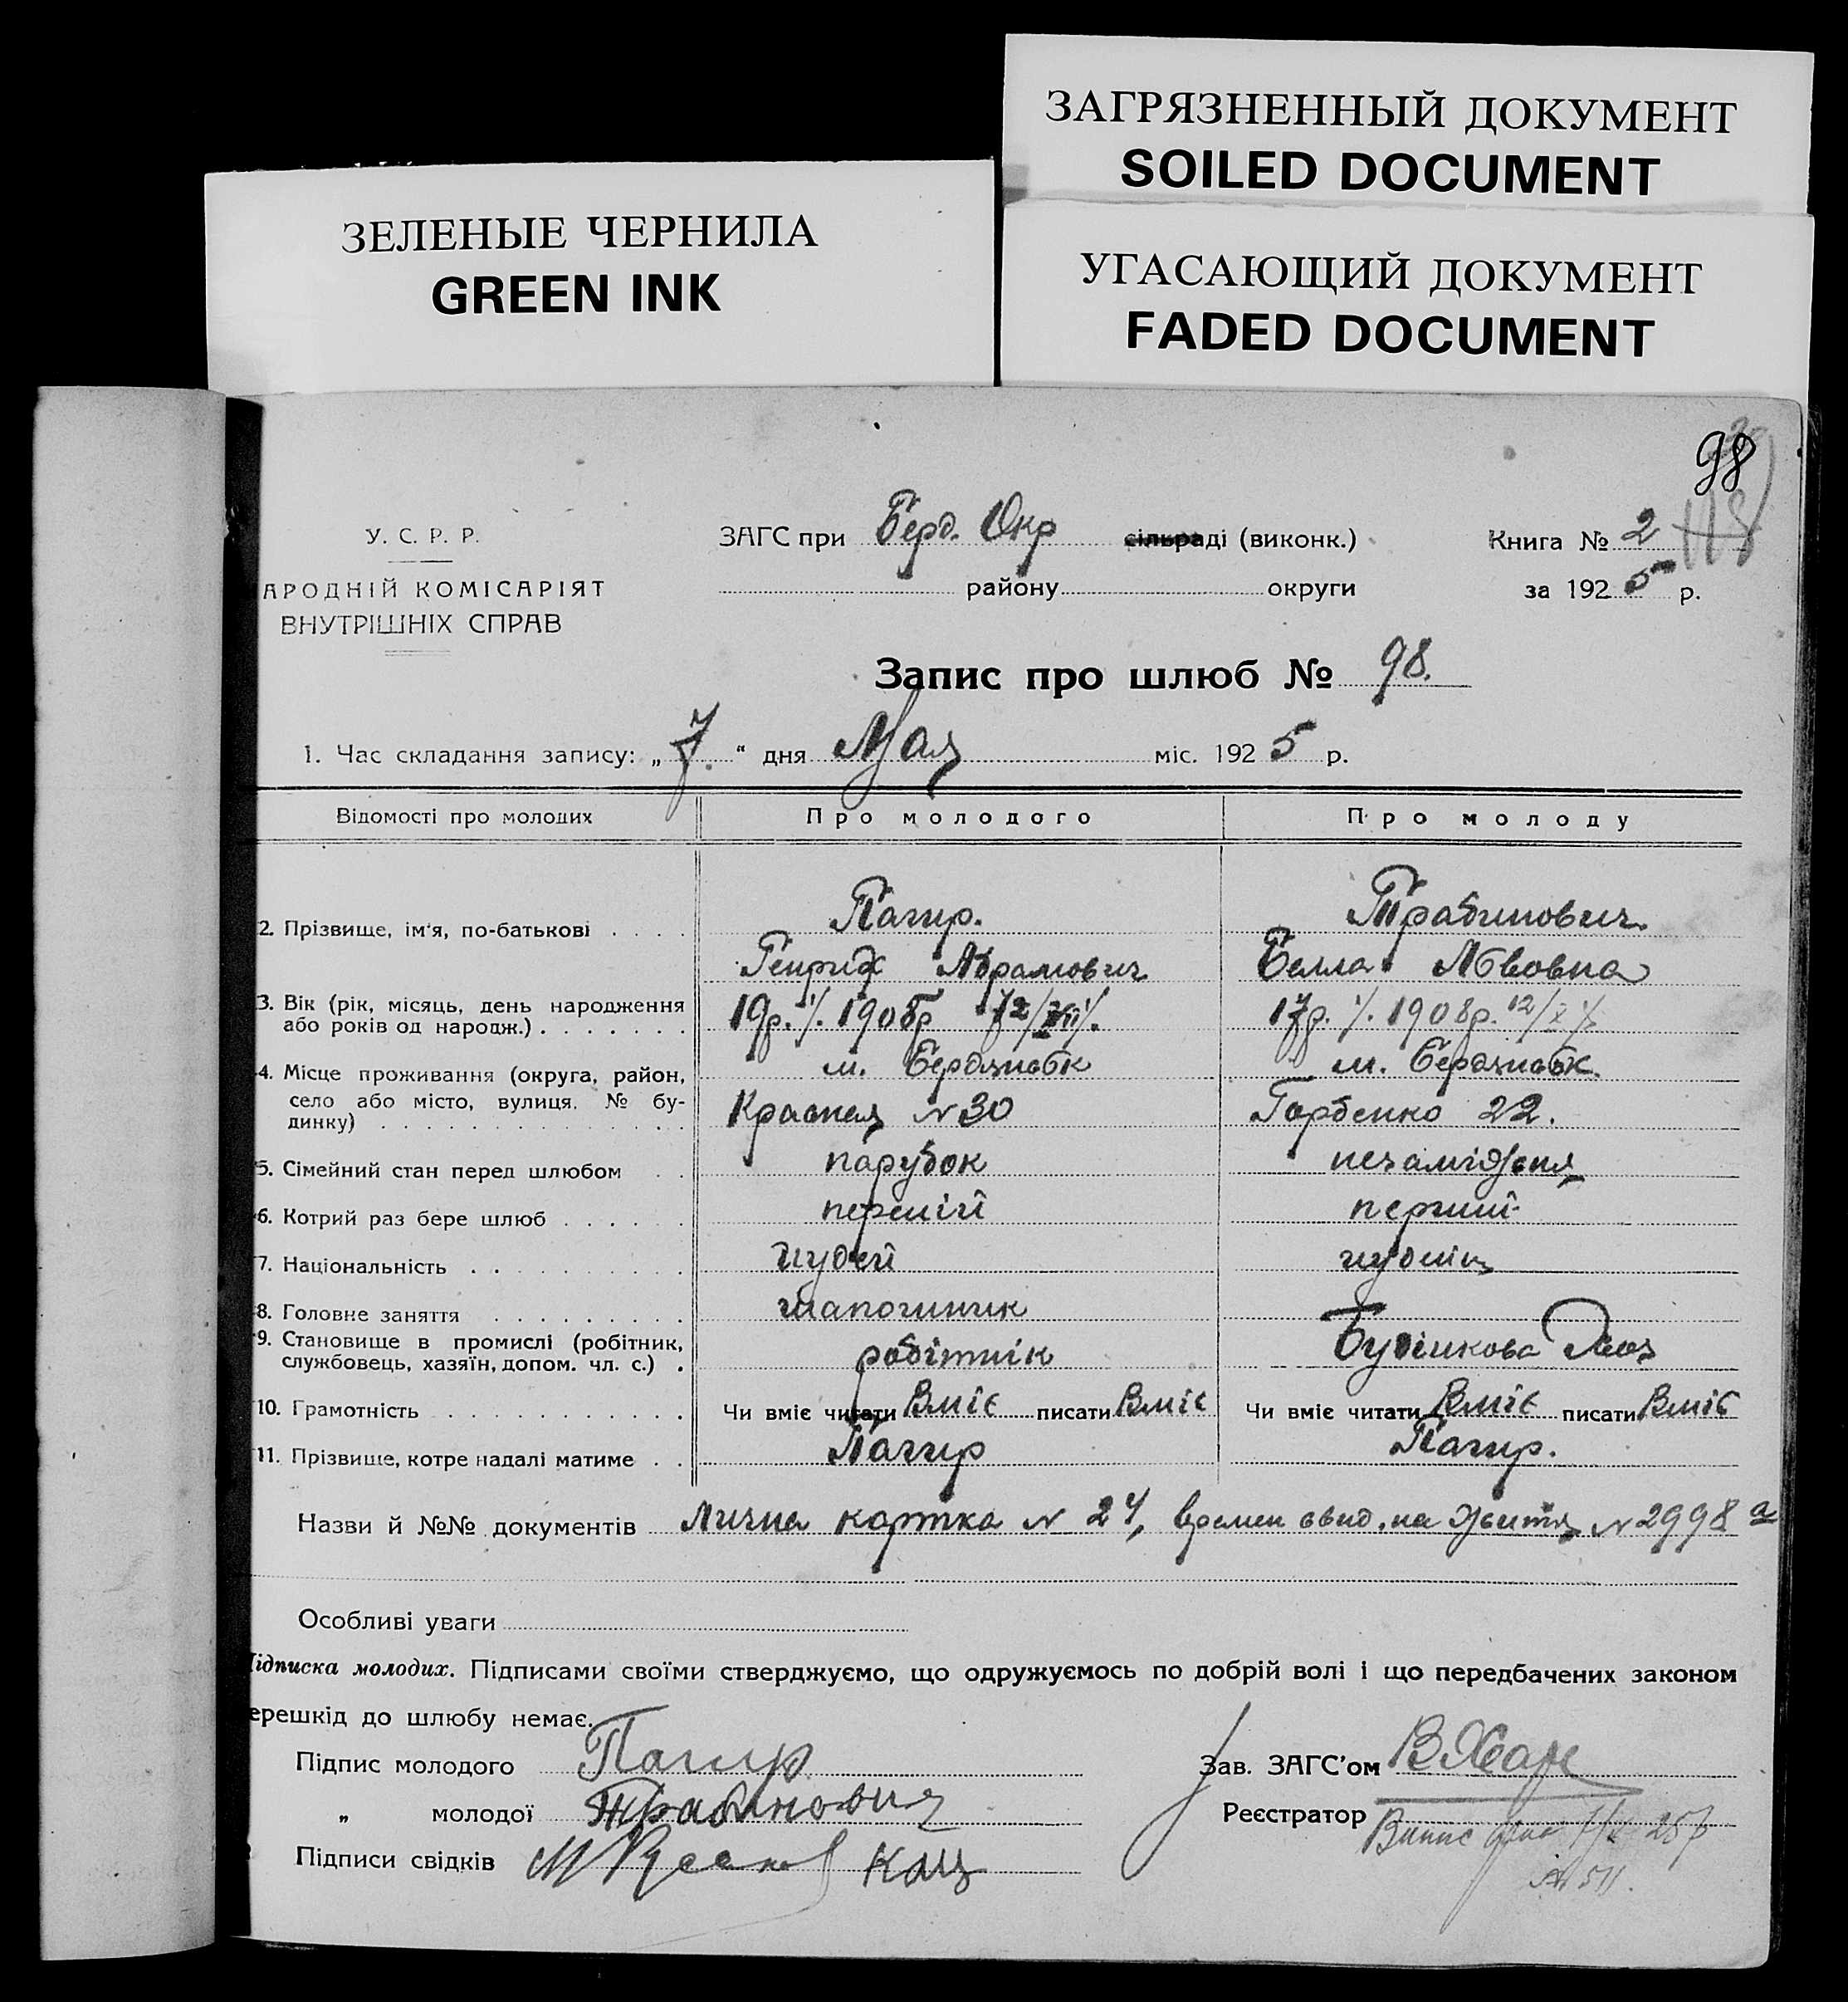 ЗАГРЯЗНЕННЫЙ ДОКУМЕНТ
SOILED DOCUMENT
ЗЕЛЕНЫЕ ЧЕРНИЛА
GREEN INK
УГАСАЮЩИЙ ДОКУМЕНТ
FADED DOCUMENT
98
У. С. Р. Р.
АРОДНІЙ КОМІСАРІЯТ
ВНУТРІШНІХ СПРАВ
ЗАГС при Берд. Окр сільраді (виконк.)
району округи
Книга № 2
за 1925 р.
Запис про шлюб № 98.
1. Час складання запису: „ 7. “ дня Мая міс. 1925 р.
Відомості про молодих Про молодого Про молоду
2. Прізвище, ім'я, по-батькові Пагир. Трабинович
Генрих Абрамович Белла Львовна
3. Вік (рік, місяць, день народження 19р. 190 17р. 1908р. 12/X
або років од народж.)
4. Місце проживання (округа, район, м. Бердичів м. Бердичів
село або місто, вулиця, № бу- Красная № 30 Горбенко 22.
динку)
5. Сімейний стан перед шлюбом парубок незаміжня
6. Котрий раз бере шлюб перший перший
7. Національність иудей иудейка
8. Головне заняття
9. Становище в промислі (робітник, робітник
службовець, хазяїн, допом. чл. с.)
10. Грамотність Чи вміє читати Вміє писати Вміє Чи вміє читати Вміє писати Вміє
11. Прізвище, котре надалі матиме Пагир Пагир.
Назви й №№ документів Лична картка № 24, времен свид. на життя № 2998 а
Особливі уваги
ідписка молодих. Підписами своїми стверджуємо, що одружуємось по добрій волі і що передбачених законом
ерешкід до шлюбу немає.
Підпис молодого Пагир
„ молодої Трабинович
Підписи свідків Кац
Зав. ЗАГС'ом
Реєстратор
№ 511.